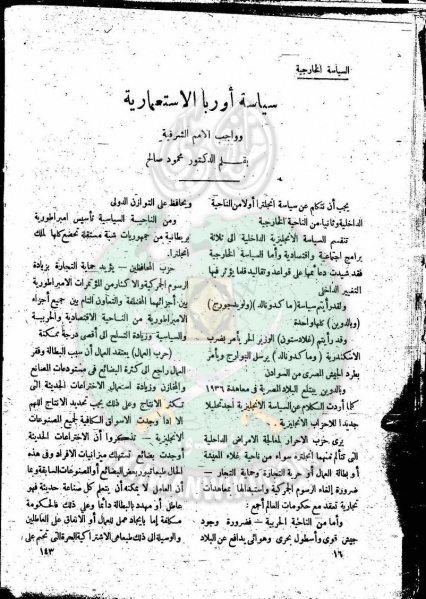 السياسة الخارجية
سياسة أوربا الاستعمارية
وواجب الامم الشرقية
بقلم الدكتور محمود صالح
يجب أن نتكلم عن سياسة انجلترا أولا من الناحية
الداخلية وثانيا من الناحية الخارجية
تنقسم السياسة الانجليزية الداخلية الى ثلاثة
برامج اجتماعية واقتصادية وأما السياسة الخارجية
فقد شيدت دعائمها على قواعد وتقاليد قلما يؤثر فيها
التغيير الداخلى
ولقد رأيتم سياسة (ماكدونالد) (ولويد جورج)
(وبالدوين) كلها واحدة
وقد رأيتم (غلادستون) الوزير الحر يأمر بضرب
الاسكندرية (وماكدونالد) يرسل البوارج ويأمر
بطرد الجيش المصرى من السودان
وبالدوين يبتلع البلاد المصرية فى معاهدة ١٩٣٦
كلما أردت الكلام عن السياسة الانجليزية أجد تحليلا
جديدا للاحزاب الانجليزية
يرى حزب الاحرار لمعالجة الامراض الداخلية
التى تتألم منها انجلترة سواء من ناحية غلاء المعيشة
أو بطالة العمال أو حرية التجارة وحماية التجار —
ضرورة إلغاء الرسوم الجمركية واستبدالها بمعاهدات
تجارية تعقد مع حكومات العالم أجمع :
وأما من الناحية الحربية — فضرورة وجود
جيش قوى وأسطول بحرى وهوائى يدافع عن البلاد
١٦
ويحافظ على التوازن الدولى
ومن الناحية السياسية تأسيس امبراطورية
بريطانية من جمهوريات شبة مستقلة تخضع كلها لملك
انجلترا.
حزب المحافظين — يؤيد حماية التجارة بزيادة
الرسوم الجمركية والاكثار من المؤتمرات الامبراطورية
بين أجزائها المختلفة والتعاون التام بين جميع أجزاء
الامبراطورية من الناحية الاقتصادية والحربية
والسياسية وزيادة التسلح الى أقصى درجة ممكنة
(حزب العمال) يعتقد العمال أن سبب البطالة وفقر
العمال راجع الى كثرة البضائع فى مستودعات المصانع
والمخازن وزيادة استعمال الاختراعات الحديثة التى
تكثر الانتاج وعلى ذلك يجب تحديد الانتاج اللهم
الا اذا وجدت الاسواق الكافية لجميع المصنوعات
الانجليزية — تذكروا أن الاختراعات الحديثة
أوجدت بضائع تستهلك ميزانيات الافراد وفى هذه
الحال طبعا تبور بعض البضائع أو المصنوعات السابقة وبما
أن العامل لا يمكنه أن يتعلم كل صناعة حديثة فهو
عاطل أو مهدد بالبطالة دائما وعلى ذلك فالحكومة
مكلفة إما بإيجاد عمل للعمال أو الانفاق على العاطلين
والوسيلة الى ذلك طبعا هى الاشتراكية الحرة التى تجنى على
١٤٣